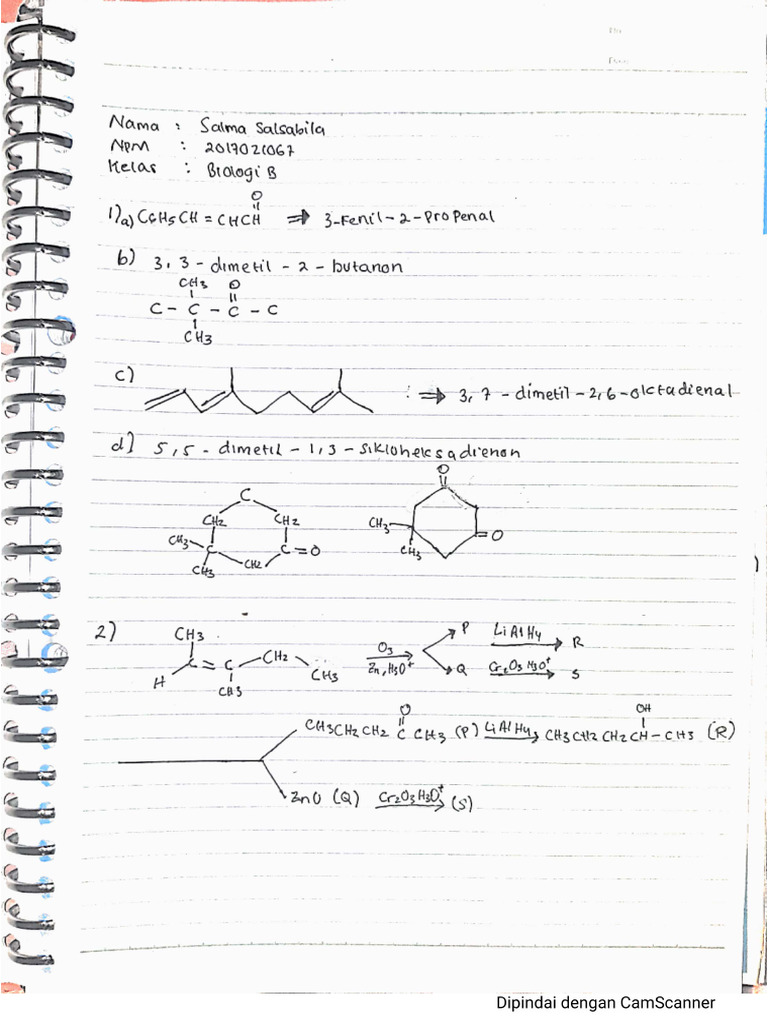 Nama : Salma Salsabila
NPM : 2017021067
Kelas : Biologi B
O
1) a) C6H5CH = CHCH ⇒ 3-Fenil-2-Propenal
b) 3,3-dimetil-2-butanon
CH3 O
C - C - C - C
CH3
c) : ⇒ 3,7-dimetil-2,6-oktadienal
d) 5,5-dimetil-1,3-sikloheksadienon
C O
CH2 CH2 CH3
CH3 C C=O CH3 O
CH3 CH2
2) CH3 P LiAlH4 R
C=C CH2 CH3 O3 Zn, H3O+
H CH3 Q Cr2O3 H3O+ S
O OH
CH3CH2CH2 C CH3 (P) LiAlH4 CH3CH2CH2CH-CH3 (R)
ZnO (Q) Cr2O3H3O+ (S)
Dipindai dengan CamScanner